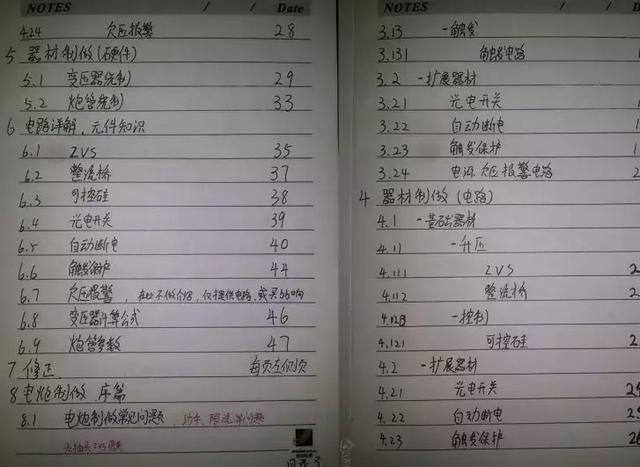 NOTES / / Date
4.24 欠压报警 28
5 器材制做(硬件)
5.1 变压器绕制 29
5.2 炮管绕制 33
6 电路详解、元件知识
6.1 ZVS 35
6.2 整流桥 37
6.3 可控硅 38
6.4 光电开关 39
6.5 自动断电 40
6.6 触发保护 44
6.7 欠压报警,在此不做介绍,仅提供电路,或买
6.8 变压器计算公式 46
6.9 炮管参数 47
7 修正 每页左侧页
8 电炮制做 序篇
8.1 电炮制做常见问题
NOTES / / Date
3.13 一触发
3.131 触发电路
3.2 一扩展器材
3.21 光电开关
3.22 自动断电
3.23 触发保护
3.24 电源欠压报警电路
4 器材制做(电路)
4.1 一基础器材
4.11 一升压
4.111 ZVS
4.112 整流桥
一控制
4.121 可控硅
4.2 一扩展器材
4.21 光电开关
4.22 自动断电
4.23 触发保护